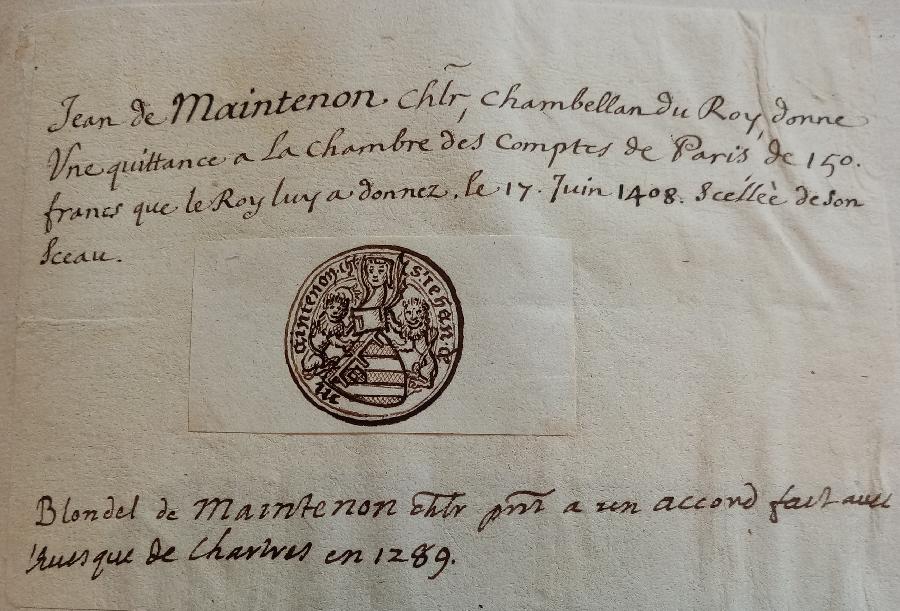 Jean de Maintenon. Chlr, Chambellan du Roy, donne
Vne quittance a La Chambre des Comptes de Paris, de 150.
francs que le Roy luy a donnez, le 17. Juin 1408. Scellée de son
Sceau.
s'rehan de
maintenon chr
Blondel de Maintenon chlr pnt a un accord fait avec
l'Euesque de Chartres en 1289.